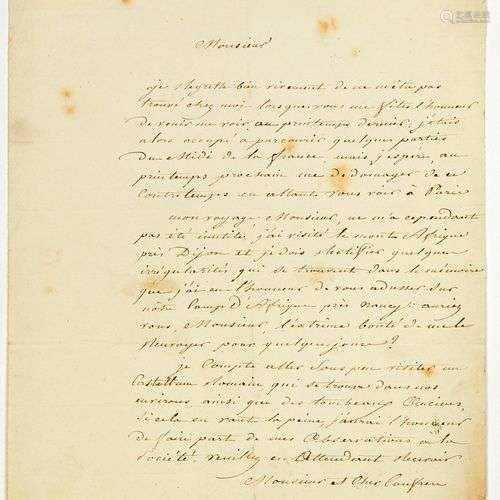 Monsieur
je Regrette bien vivement de ne m'être pas
trouvé chez moi lorsque vous me fîtes l'honneur
de venir me voir, au printemps dernier, j'étais
alors occupé a parcourir quelques parties
du Midi de la france, mais j'espere, au
printemps prochain me dédomager de ce
Contretemps en allant vous voir à Paris
mon voyage Monsieur, ne m'a cependant
pas été inutile, j'ai visité le mont Afrique
près Dijon et je dois Rectifier quelques
irrégularités qui se trouvent dans le mémoire
que j'ai eu l'honneur de vous adresser sur
nôtre Camp D'Afrique près Nancy; auriez
vous, Monsieur, l'extrême bonté de me le
Renvoyer pour quelques jours?
je Compte aller Sous peu visiter un
Castellum Romain qui se trouve dans nos
environs ainsi que des tombeaux anciens,
Si cela en vaut la peine, j'aurai l'honneur
de faire part de mes Observations a la
Société, veuillez en Attendant Recevoir
Monsieur et Cher Confrere